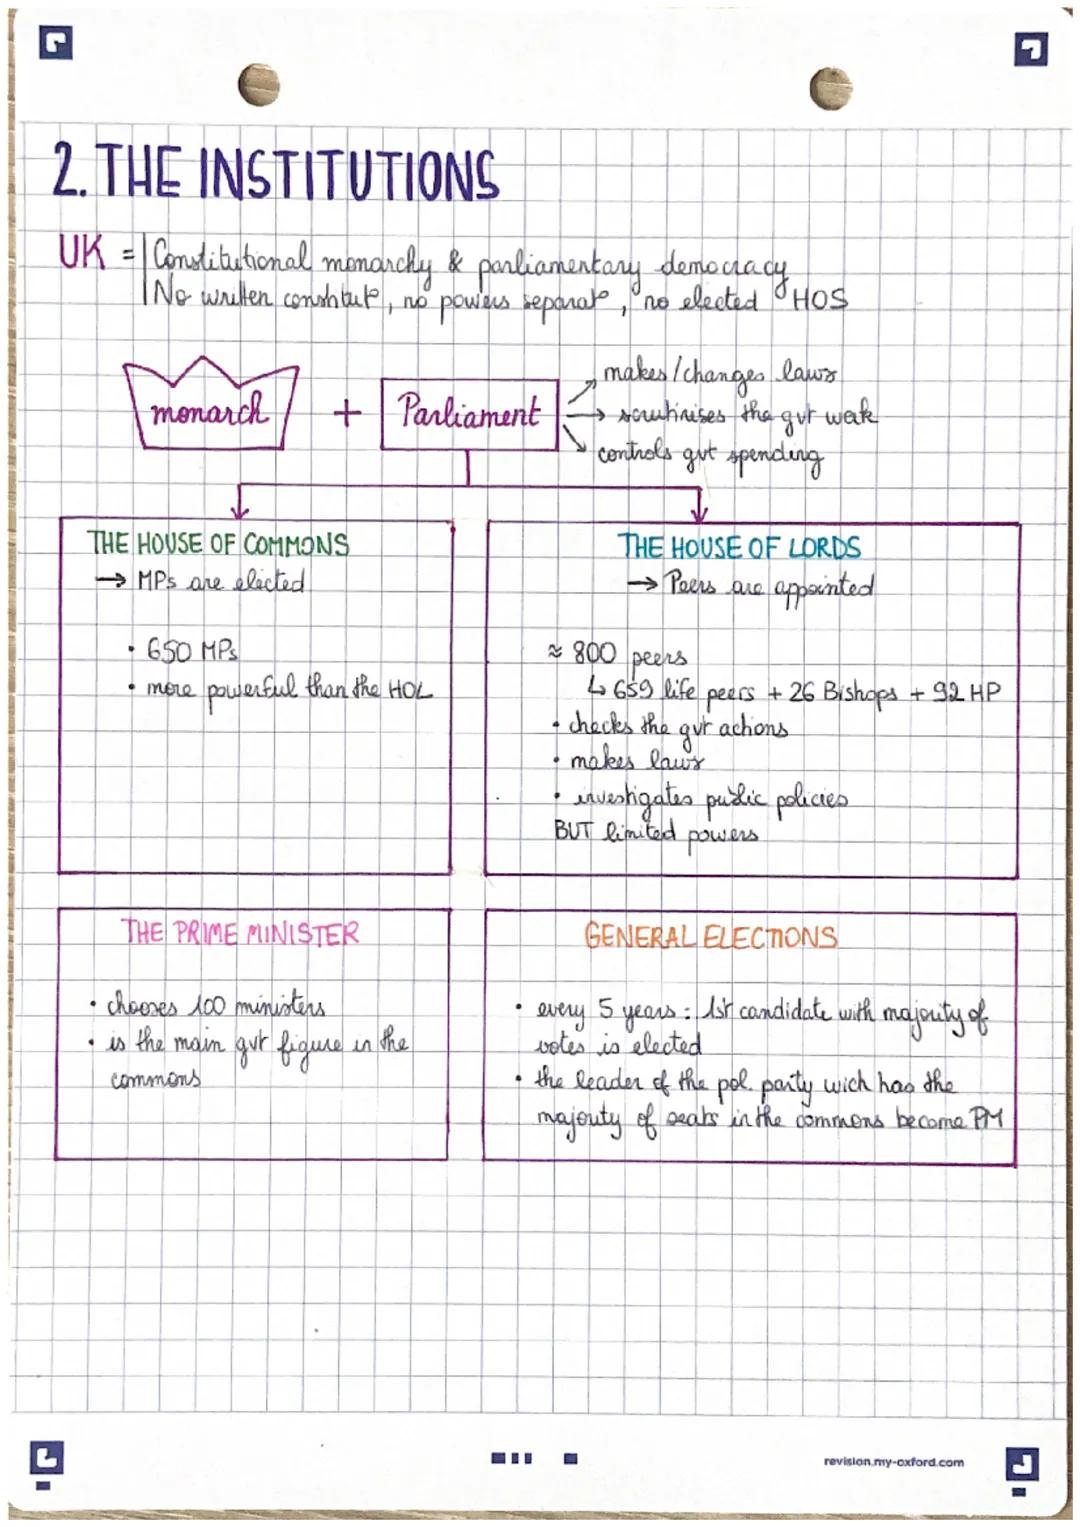 2. THE INSTITUTIONS
UK = Constitutional monarchy & parliamentary democracy
No written constitut°, no powers separat°, no elected HOS
monarch + Parliament
makes/changes laws
→ scrutinises the gvt wok
controls gvt spending
THE HOUSE OF COMMONS
→ MPs are elected
• 650 MPs
• more powerful than the HOL
THE HOUSE OF LORDS
→ Peers are appointed
≈ 800 peers
↳ 659 life peers + 26 Bishops + 92 HP
• checks the gvt actions
• makes laws
• investigates public policies
BUT limited powers
THE PRIME MINISTER
• chooses 100 ministers
• is the main gvt figure in the
commons
GENERAL ELECTIONS
• every 5 years : 1st candidate with majority of
votes is elected
• the leader of the pol. party wich has the
majouty of seats in the commons become PM
revision.my-oxford.com